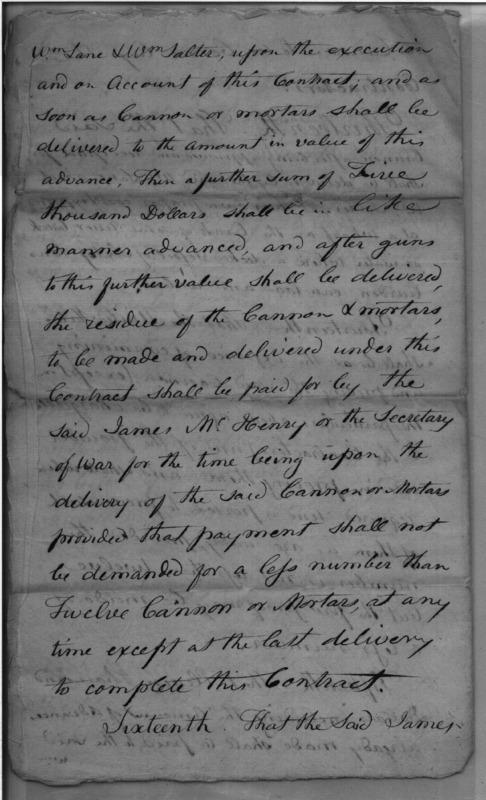 Wm Lane & Wm Salter; upon the execution
and on Account of this Contract; and as
soon as Cannon or mortars shall be
delivered to the amount in value of this
advance, Then a further sum of Five
thousand Dollars shall be in like
manner advanced, and after guns
to this further value shall be delivered,
the residue of the Cannon & mortars,
to be made and delivered under this
Contract shall be paid for by the
said James McHenry or the Secretary
of War for the time being upon the
delivery of the said Cannon or Mortars
provided that payment shall not
be demanded for a less number than
Twelve Cannon or Mortars, at any
time except at the last delivery
to complete this Contract.
Sixteenth That the Said James